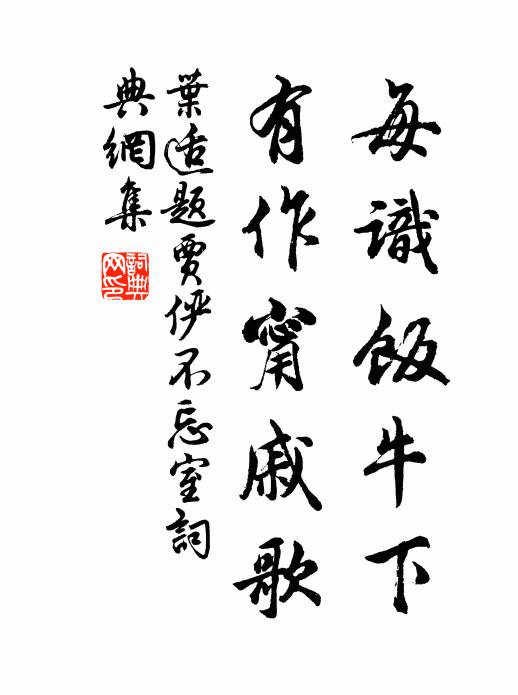 每識飯牛下
有作甯戚歌
葉适題賈伻不忘室詞
典網集
詞典網印